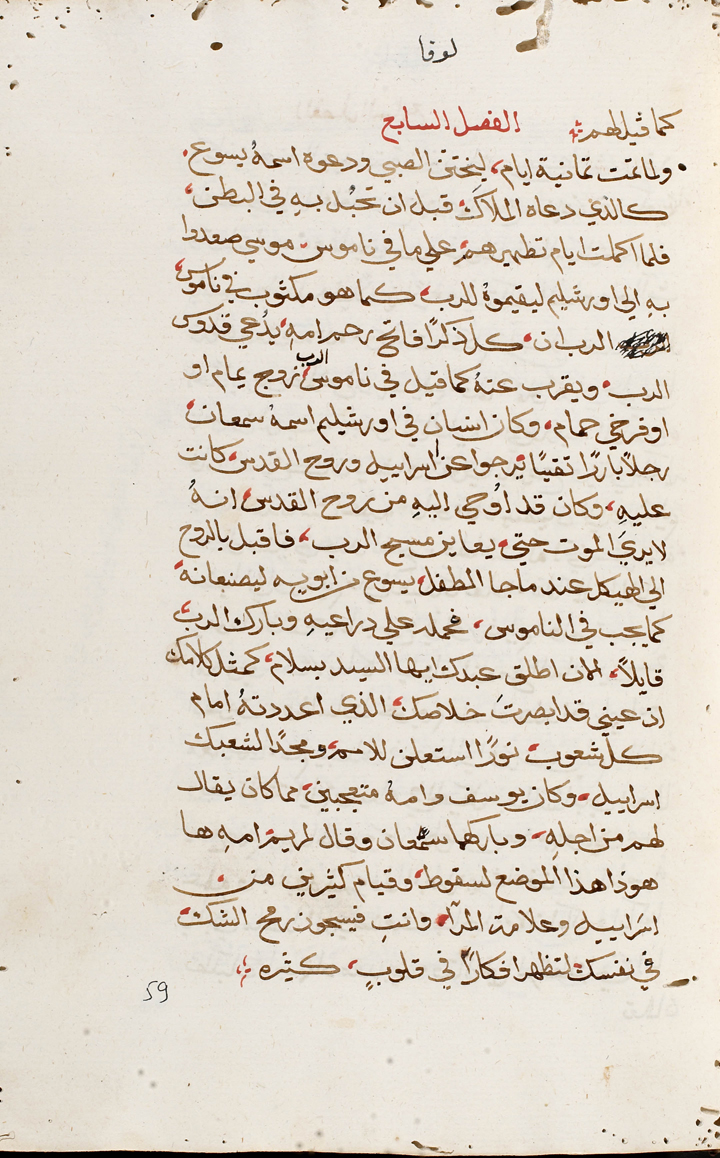 لوقا
كما قيل لهم ❖ الفصل السابع
ولما تمت ثمانية ايام، ليختتن الصبي ودعوه اسمهُ يسوع.
كالذي دعاه الملاك قبل ان تحبل بهِ في البطن،
فلما اكملت ايام تطهيرهم علي ما في ناموس موسي صعدوا
بهِ الي اورشليم ليقيموهُ للرب، كما هو مكتوب في ناموس
الرب ان، كل ذكرًا فاتح رحم امهِ يدُعي قدوس
الرب، ويقرب عنهُ كما قيل في ناموس الرب زوج يمام او
او فرخي حمام، وكان انسان في اورشليم اسمهُ سمعان،
رجلاً بارًا تقيًا يرجوا عزا اسراييل وروح القدس كانت
عليهِ، وكان قد اوُحي اليهِ من روح القدس انهُ
لا يري الموت حتي يعاين مسيح الرب، فاقبل بالروح
الي الهيكل عند ما جا الطفل يسوع من ابويه ليصنعا نهُ
كما يجب في الناموس، فحمله علي دراعيهِ وبارك الرب
قايلاً، الان اطلق عبدك ايها السيد بسلام، كمثل كلامك
ان عيني قد ابصرت خلاصك، الذي اعددتهُ امام
كل شعوب، نورًا استعلن للامم، ومجدًا لشعبك
اسراييل، وكان يوسف وامهُ متعجبين، مما كان يقال
لهم من اجلهِ، وباركهما سمعان وقال لمريم امهِ ها
هوذا هذا الموضع لسقوط، وقيام كثيرين من
اسراييل وعلامة المرآ، وانتِ فيسجوز رمح الشك
في نفسك لتظهر افكارًا في قلوبٍ، كثيره ❖
59